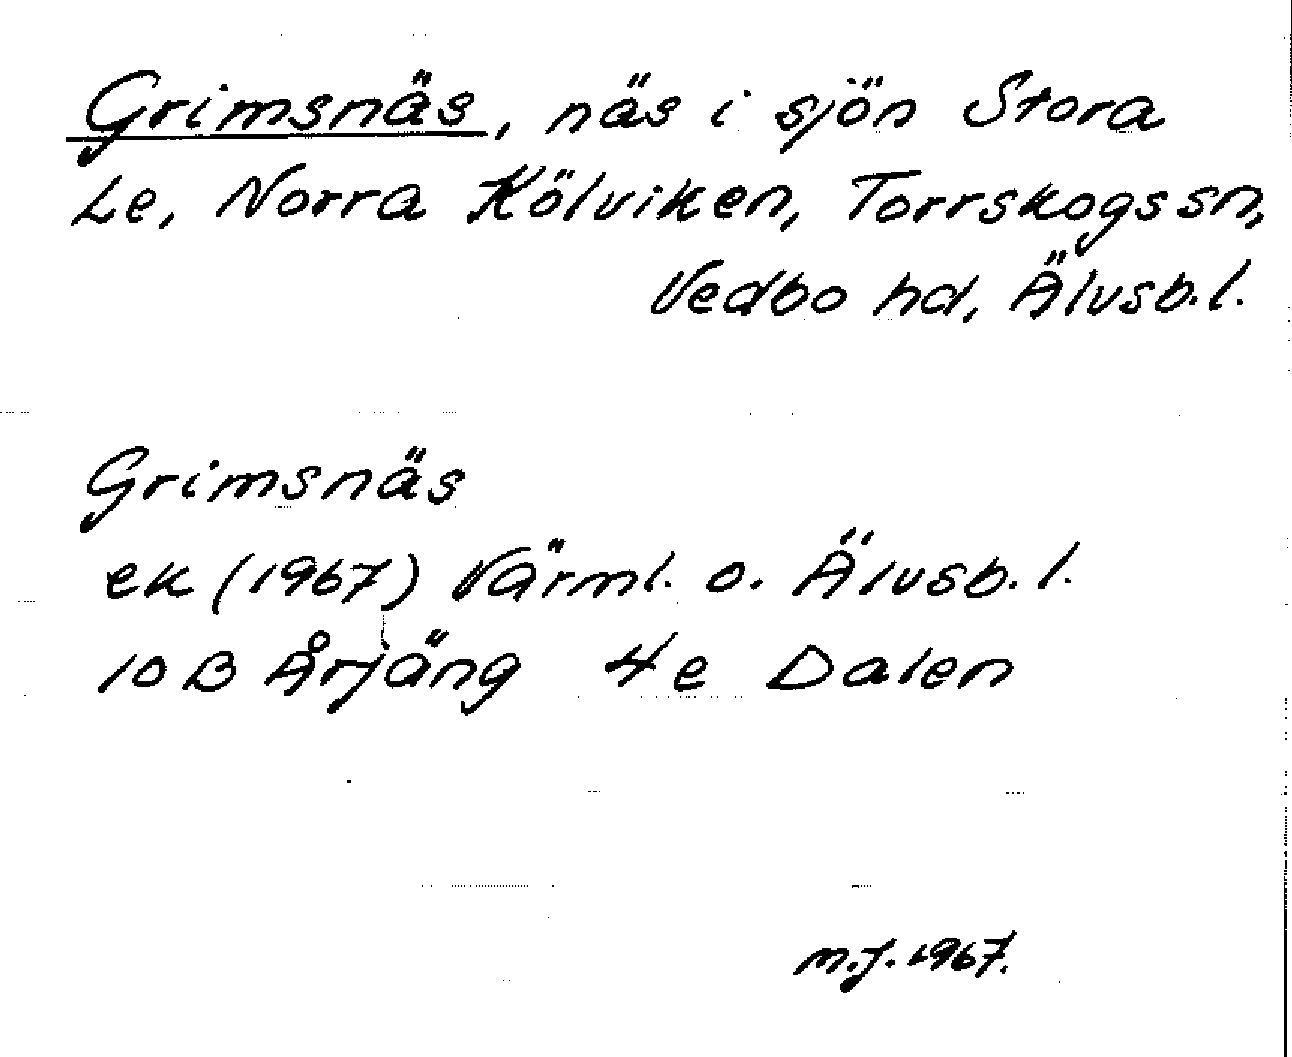 Grimsnäs, näs i sjön Stora
Le, Norra Kölviken, Torrskogs sn,
Vedbo hd, Älvsb.l.
Grimsnäs
ek (1967) Värml. o. Älvsb. l.
10 B Årjäng 4e Dalen
m.j. 1967.